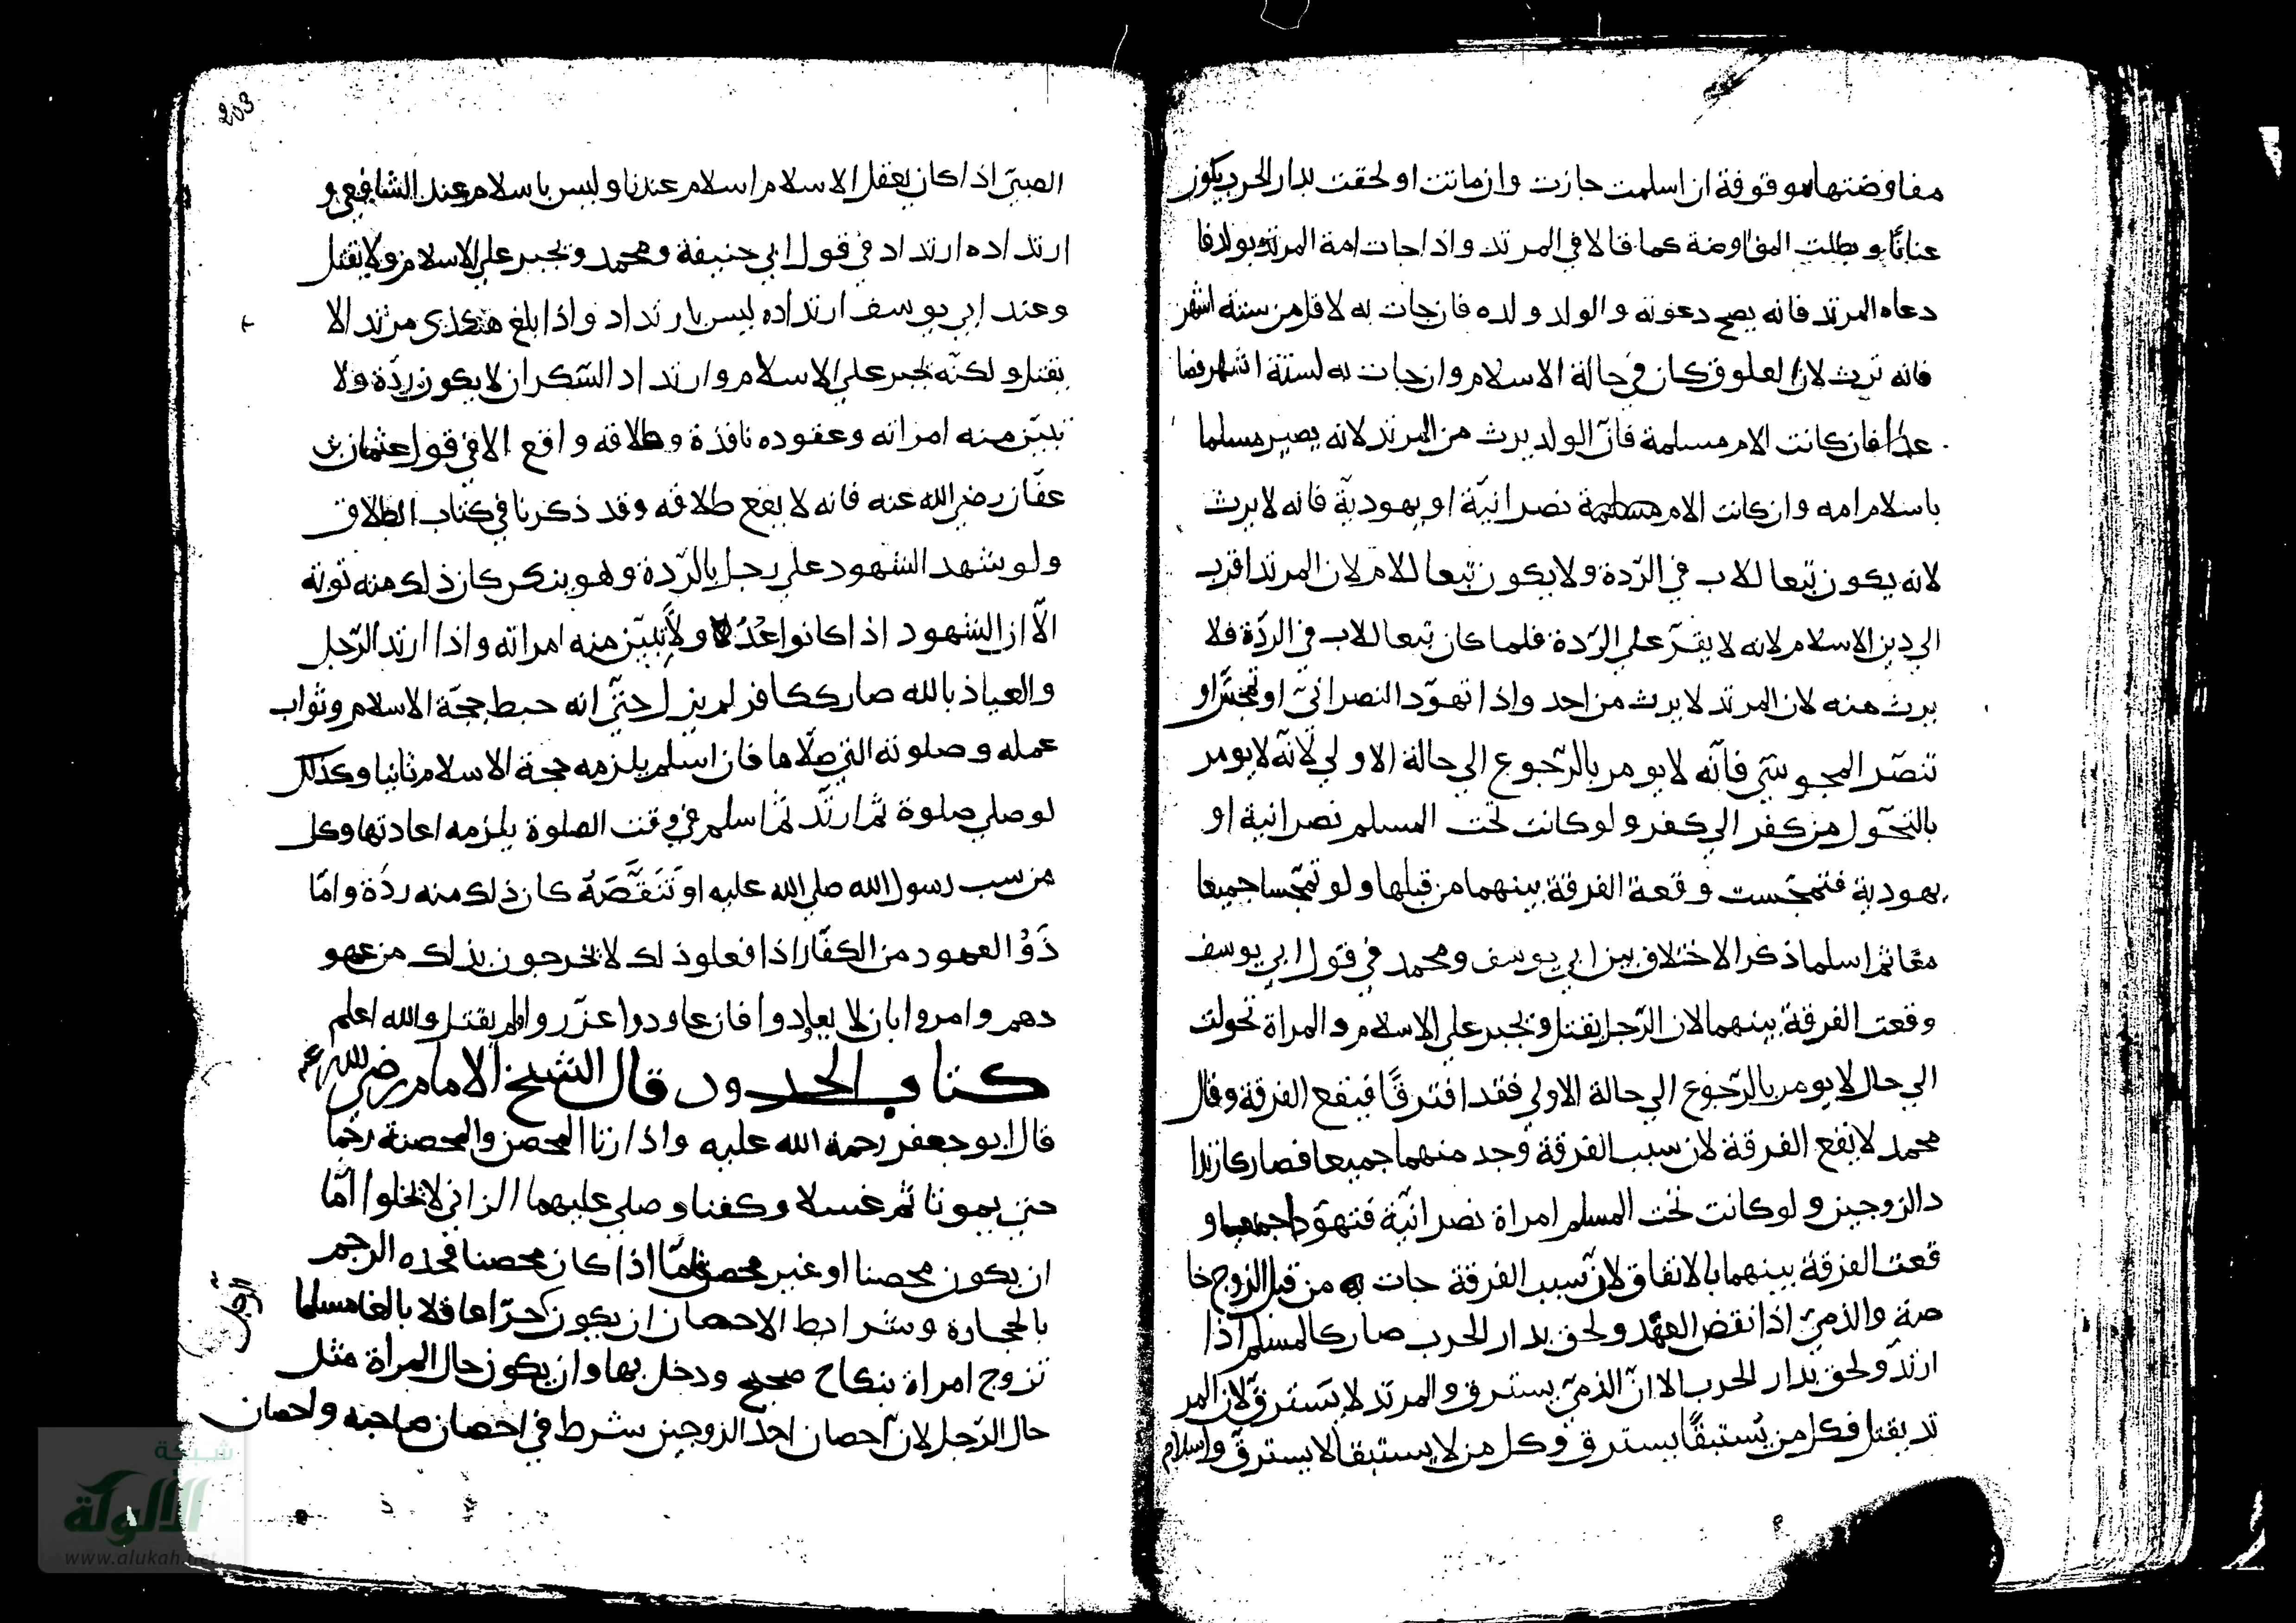 مفاوضتها موقوفة ان اسلمت جازت وان ماتت او لحقت بدار الحرب يكون
عنانًا و بطلت المفاوضة كما قالا في المرتد واذا جات امة المرتد بولد فا
دعاه المرتد فانه يصح دعوته والولد ولده فان جات به لاقل من ستة اشهر
فانه يرث لان العلوق كان في حالة الاسلام وان جات به لستة اشهر فصا
عدا فان كانت الام مسلمة فان الولد يرث من المرتد لانه يصير مسلما
باسلام امه وان كانت الام نصرانيّة او يهوديّة فانه لا يرث
لانه يكون تبعا للاب في الرّدة ولا يكون تبعا للام لان المرتد اقرب
الي دين الاسلام لانه لا يقرّ علي الرّدة فلما كان تبعا للاب في الردّة فلا
يرث منه لان المرتد لا يرث من احد واذا تهوّد النصرانيّ او تمجّس او
تنصّر المجوسيّ فانّه لا يومر بالرّجوع الي حالة الاولي لانّه لا يومر
بالتحوّل من كفر الي كفر ولو كانت تحت المسلم نصرانية او
يهودية فتمجّست وقعة الفرقة بينهما من قبلها ولو تمجّسا جميعا
معًا ثم اسلما ذكر الاختلاف بين ابي يوسف ومحمد في قول ابي يوسف
وقعت الفرقة بينهما لان الرّجل يقتل و يجبر علي الاسلام والمراة تحولت
الي حال لا يومر بالرّجوع الي حالة الاولي فقد افترقًا فيقع الفرقة وقال
محمد لا يقع الفرقة لان سبب الفرقة وجد منهما جميعا فصار كارتدا
د الزوجين ولو كانت تحت المسلم امراة نصرانيّة فتهوّدا جميعا و
قعت الفرقة بينهما بالاتفاق لانّ سبب الفرقة جات من قبل الزوج خا
صة والذميّ اذا نقض العهد ولحق بدار الحرب صار كالمسلم اذا
ارتدّ ولحق بدار الحرب الا انّ الذميّ يسترق والمرتد لا يسترقّ لان المر
تد يقتل فكل من يستبقًا يسترق وكل من لا يستبقا لا يسترقّ واسلام
203
الصبيّ اذا كان يعقل الاسلام اسلام عندنا وليس باسلام عند الشافعي و
ارتداده ارتداد في قول ابي حنيفة ومحمد ويجبر علي الاسلام ولا يقتل
وعند ابي يوسف ارتداده ليس بارتداد واذا بلغ هكذي مرتد الا
يقتل و لكنّه يجبر علي الاسلام وارتداد السّكران لا يكون ردّة ولا
تبين منه امراته وعقوده نافذة وطلاقه واقع الا في قول عثمان بن
عفّان رضي الله عنه فانه لا يقع طلاقه وقد ذكرنا في كتاب الطلاق
ولو شهد الشهود علي رجل بالرّدة وهو ينكر كان ذلك منه توبة
الّا ان الشهود اذا كانوا عُدُلا ولا تبين منه امراته واذا ارتد الرّجل
والعياذ بالله صار ككافر لم يزل حتيّ انه حبط حجّة الاسلام وثواب
عمله وصلوته التي صلّاها فان اسلم يلزمه حجة الاسلام ثانيا وكذلك
لو صلي صلوة ثم ارتدّ ثم اسلم في وقت الصلوة يلزمه اعادتها وكل
من سب رسول الله صلي الله عليه او تَنَقَّصَهُ كان ذلك منه ردّة وامّا
ذَوُ العهود من الكفّار اذا فعلو ذلك لا يخرجون بذلك من عهو
دهم وامروا بان لا يعادوا فان عاودوا عزّروا ولم يقتلو والله اعلم
كتاب الحدود قال الشيخ الامام رضي الله عنه
قال ابو جعفر رحمة الله عليه واذا زنا المحصن والمحصنة رجما
حتي يموتا ثم غسلا وكفنا وصلي عليهما الزاني لا يخلوا امّا
ان يكون محصنا او غير محصن فامّا اذا كان محصنا فحده الرجم
بالحجارة وشرايط الاحصان ان يكون حرّا عاقلا بالغا مسلما
الرجل
تزوج امراة بنكاح صحيح ودخل بها وان يكون حال المراة مثل
حال الرّجل لانّ احصان احد الزوجين شرط في احصان صاحبه واحصان
شبكة
الألوكة
www.alukah.net